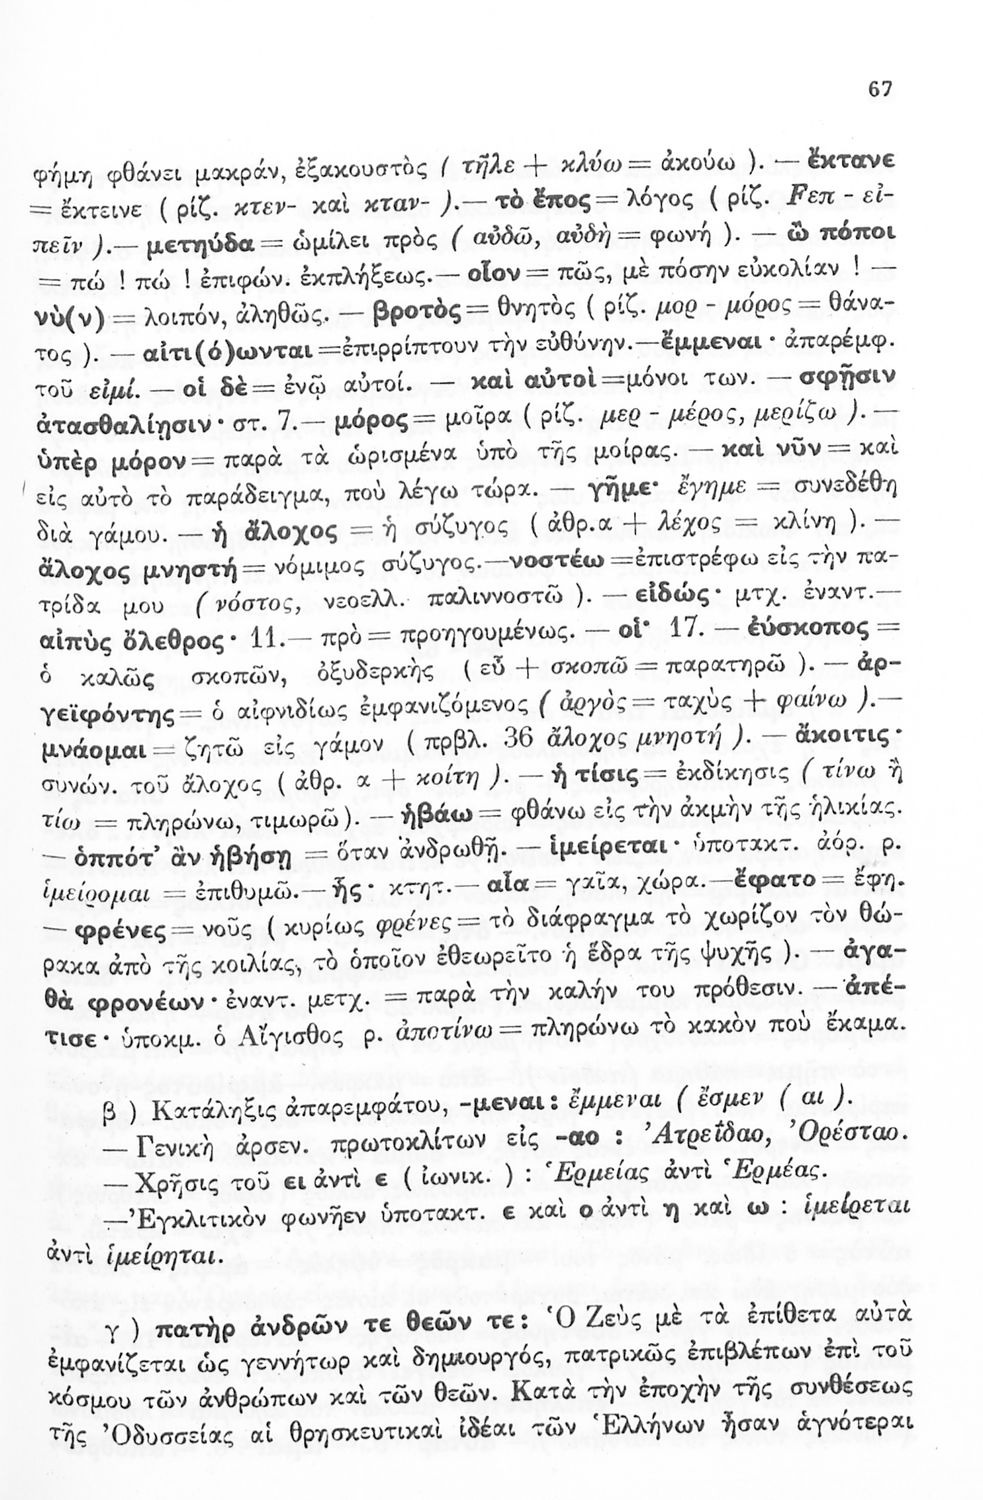 67
φήμη φθάνει μακράν, ἐξακουστὸς ( τῆλε + κλύω = ἀκούω ). — ἔκτανε
= ἔκτεινε ( ρίζ. κτεν- καὶ κταν- ).— τὸ ἔπος = λόγος ( ρίζ. Fεπ - εἰ-
πεῖν ).— μετηύδα = ὡμίλει πρὸς ( αὐδῶ, αὐδὴ = φωνή ). — ὦ πόποι
= πώ ! πώ ! ἐπιφών. ἐκπλήξεως.— οἷον = πῶς, μὲ πόσην εὐκολίαν ! —
νὺ(ν) = λοιπόν, ἀληθῶς. — βροτὸς = θνητὸς ( ρίζ. μορ - μόρος = θάνα-
τος ). — αἰτι(ό)ωνται =ἐπιρρίπτουν τὴν εὐθύνην.—ἔμμεναι · ἀπαρέμφ.
τοῦ εἰμί. — οἱ δὲ = ἐνῷ αὐτοί. — καὶ αὐτοὶ =μόνοι των. — σφῇσιν
ἀτασθαλίῃσιν · στ. 7.— μόρος = μοῖρα ( ρίζ. μερ - μέρος, μερίζω ). —
ὑπὲρ μόρον = παρὰ τὰ ὡρισμένα ὑπὸ τῆς μοίρας. — καὶ νῦν = καὶ
εἰς αὐτὸ τὸ παράδειγμα, ποὺ λέγω τώρα. — γῆμε· ἔγημε = συνεδέθη
διὰ γάμου. — ἡ ἄλοχος = ἡ σύζυγος ( ἀθρ.α + λέχος = κλίνη ). —
ἄλοχος μνηστή = νόμιμος σύζυγος.—νοστέω =ἐπιστρέφω εἰς τὴν πα-
τρίδα μου ( νόστος, νεοελλ. παλιννοστῶ ). — εἰδώς · μτχ. ἐναντ.—
αἰπὺς ὄλεθρος · 11.— πρὸ = προηγουμένως. — οἷ· 17. — ἐύσκοπος =
ὁ καλῶς σκοπῶν, ὀξυδερκὴς ( εὖ + σκοπῶ = παρατηρῶ ). — ἀρ-
γεϊφόντης = ὁ αἰφνιδίως ἐμφανιζόμενος ( ἀργὸς = ταχὺς + φαίνω ).—
μνάομαι = ζητῶ εἰς γάμον ( πρβλ. 36 ἄλοχος μνηστή ). — ἄκοιτις ·
συνών. τοῦ ἄλοχος ( ἀθρ. α + κοίτη ). — ἡ τίσις = ἐκδίκησις ( τίνω ἢ
τίω = πληρώνω, τιμωρῶ). — ἡβάω = φθάνω εἰς τὴν ἀκμὴν τῆς ἡλικίας.
— ὁππότ’ ἂν ἡβήσῃ = ὅταν ἀνδρωθῇ. — ἱμείρεται · ὑποτακτ. ἀόρ. ρ.
ἱμείρομαι = ἐπιθυμῶ.— ἧς · κτητ.— αἶα = γαῖα, χώρα.—ἔφατο = ἔφη.
— φρένες = νοῦς ( κυρίως φρένες = τὸ διάφραγμα τὸ χωρίζον τὸν θώ-
ρακα ἀπὸ τῆς κοιλίας, τὸ ὁποῖον ἐθεωρεῖτο ἡ ἕδρα τῆς ψυχῆς ). — ἀγα-
θὰ φρονέων · ἐναντ. μετχ. = παρὰ τὴν καλήν του πρόθεσιν. — ἀπέ-
τισε · ὑποκμ. ὁ Αἴγισθος ρ. ἀποτίνω = πληρώνω τὸ κακὸν ποὺ ἔκαμα.
β ) Κατάληξις ἀπαρεμφάτου, -μεναι : ἔμμεναι ( ἔσμεν ( αι ).
— Γενικὴ ἀρσεν. πρωτοκλίτων εἰς -αο : Ἀτρεΐδαο, Ὀρέσταο.
— Χρῆσις τοῦ ει ἀντὶ ε ( ἰωνικ. ) : Ἑρμείας ἀντὶ Ἑρμέας.
—Ἐγκλιτικὸν φωνῆεν ὑποτακτ. ε καὶ ο ἀντὶ η καὶ ω : ἱμείρεται
ἀντὶ ἱμείρηται.
γ ) πατὴρ ἀνδρῶν τε θεῶν τε : Ὁ Ζεὺς μὲ τὰ ἐπίθετα αὐτὰ
ἐμφανίζεται ὡς γεννήτωρ καὶ δημιουργός, πατρικῶς ἐπιβλέπων ἐπὶ τοῦ
κόσμου τῶν ἀνθρώπων καὶ τῶν θεῶν. Κατὰ τὴν ἐποχὴν τῆς συνθέσεως
τῆς Ὀδυσσείας αἱ θρησκευτικαὶ ἰδέαι τῶν Ἑλλήνων ἦσαν ἁγνότεραι